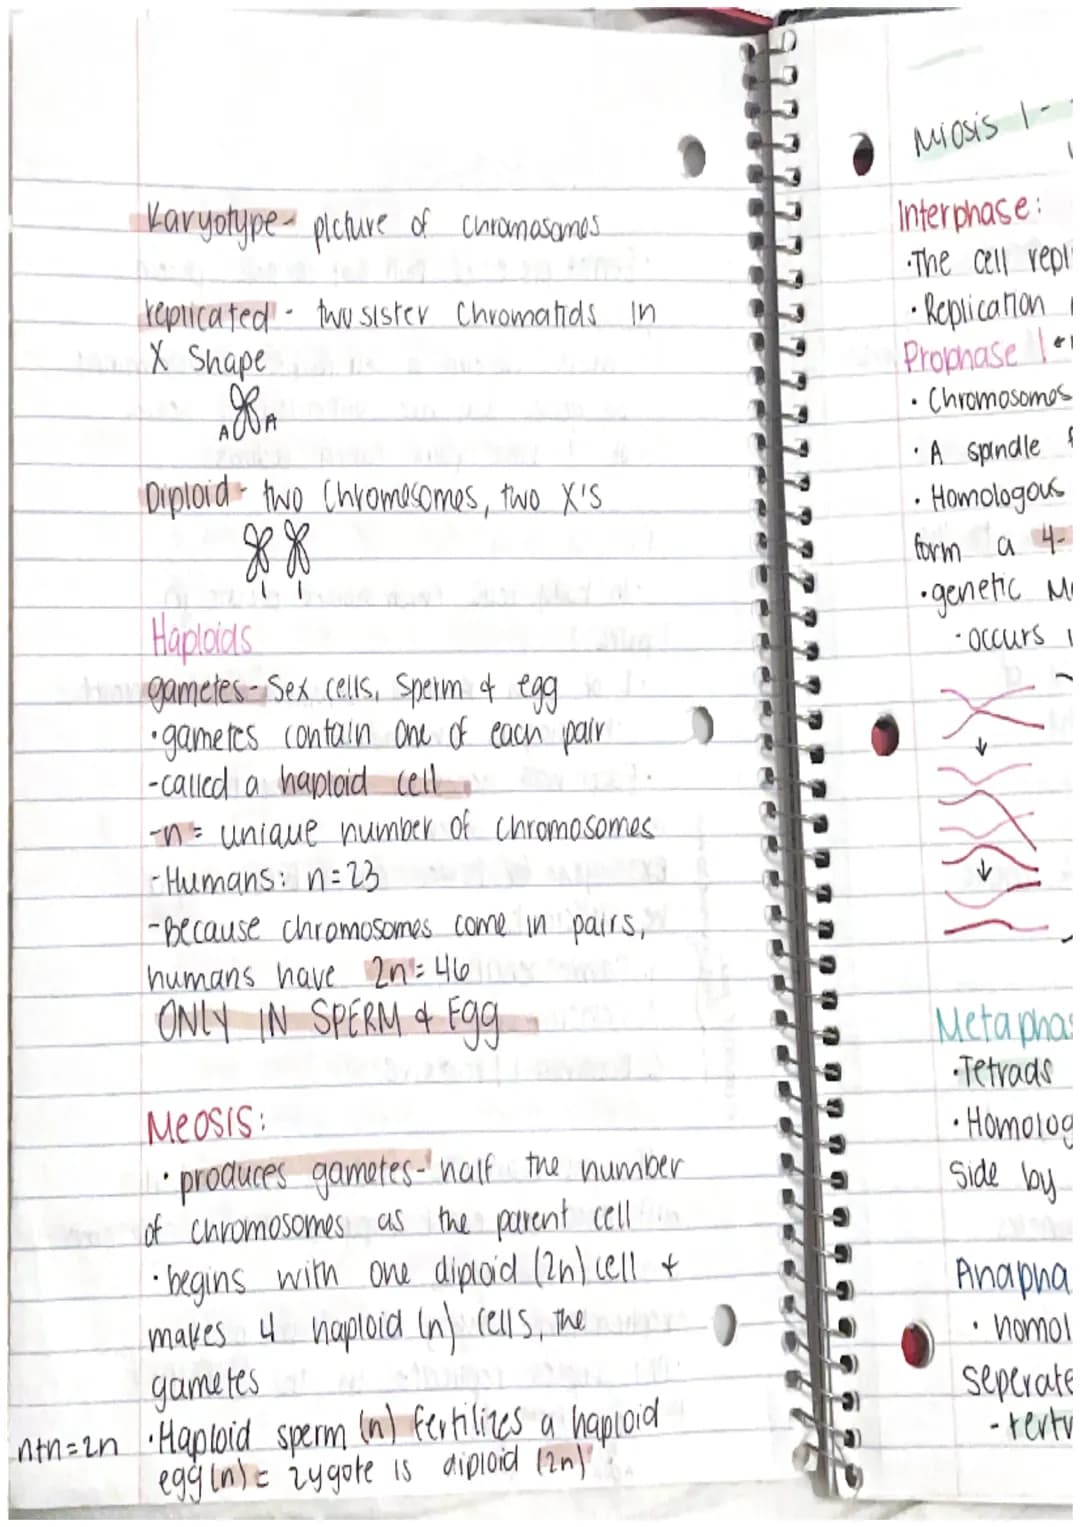 Karyotype- picture of chromosomes
replicated - two sister Chromatids in
X Shape
A A
Diploid- two Chromosomes, two X's
Haploids
gametes- Sex cells, Sperm & egg
•gametes contain one of each pair
-called a haploid cell
-n= unique number of chromosomes
-Humans: n=23
-Because chromosomes come in pairs,
humans have 2n=46
ONLY IN SPERM & Egg
Meosis:
• produces gametes- half the number
of chromosomes as the parent cell
•begins with one diploid (2n) cell &
makes 4 haploid (n) cells, the
gametes
n+n=2n •Haploid sperm (n) fertilizes a haploid
egg (n) = zygote is diploid (2n)
Miosis 1-
Interphase:
•The cell repli
•Replication
Prophase 1
• Chromosomes
• A spindle
• Homologous
form a 4-
•genetic
•occurs
Metaphas
•Tetrads
•Homolog
Side by
Anapha
• homol
seperate